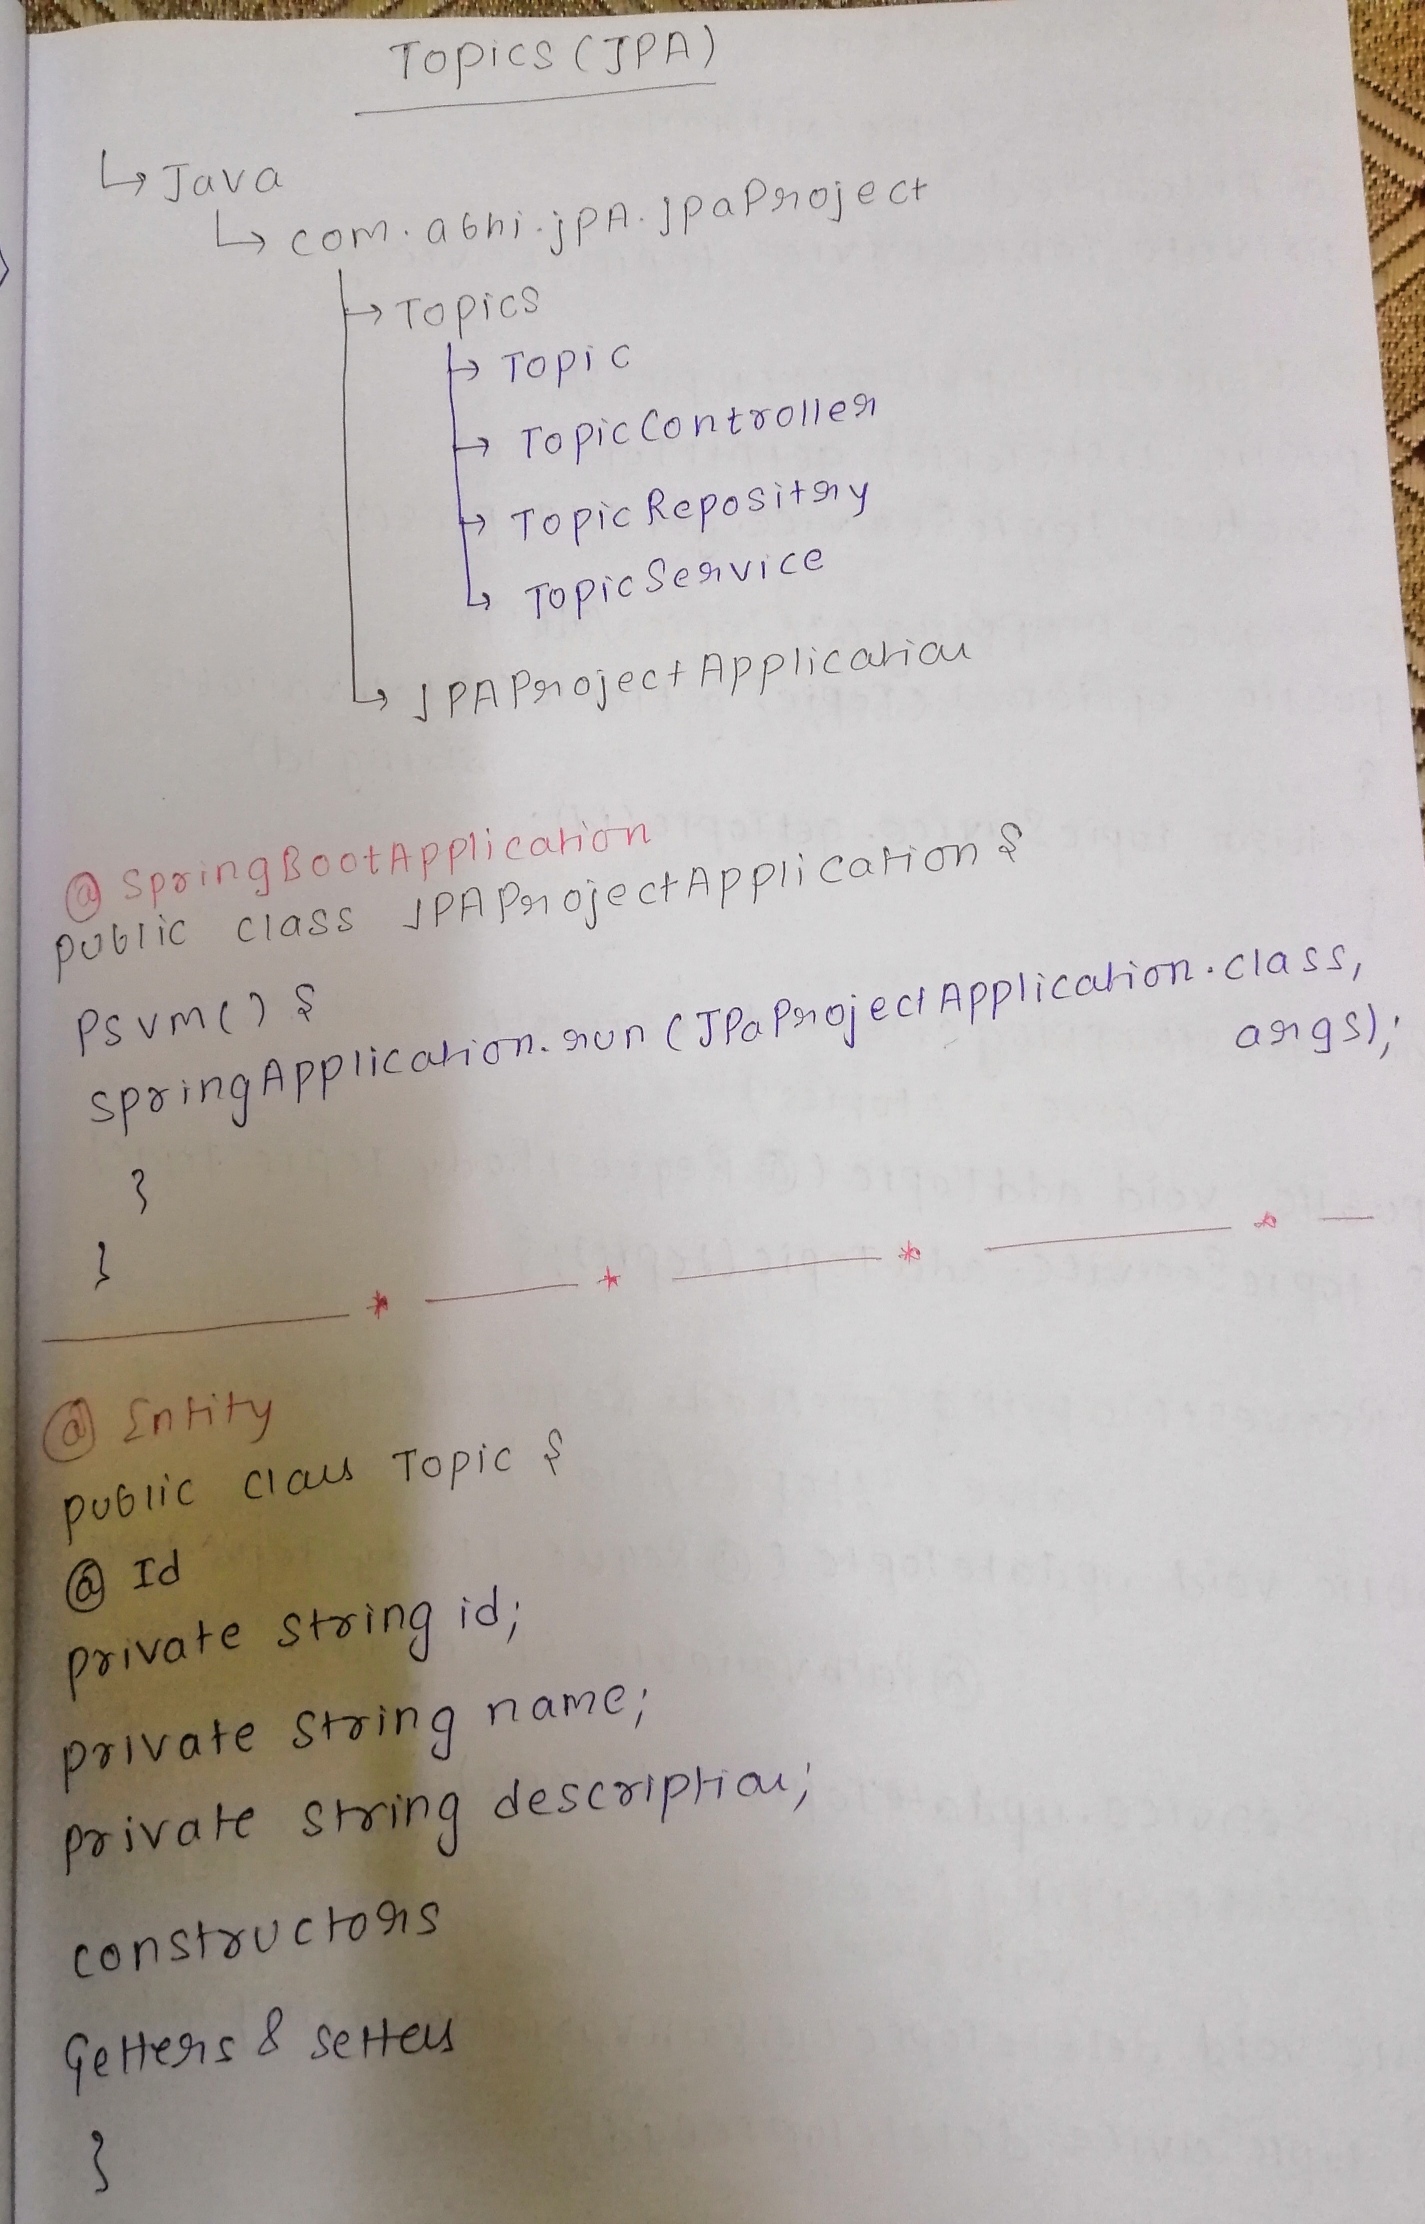 Topics (JPA)
↳ Java
↳ com.abhi.jpA.jpaProject
→ Topics
→ Topic
→ TopicController
→ TopicRepositry
↳ TopicService
↳ JPAProjectApplication
@ SpringBootApplication
public class JPAProjectApplication {
psvm() {
SpringApplication.run (JPaProjectApplication.class,
args);
}
}
@ Entity
public class Topic {
@ Id
private string id;
private string name;
private string description;
constructors
Getters & setters
}